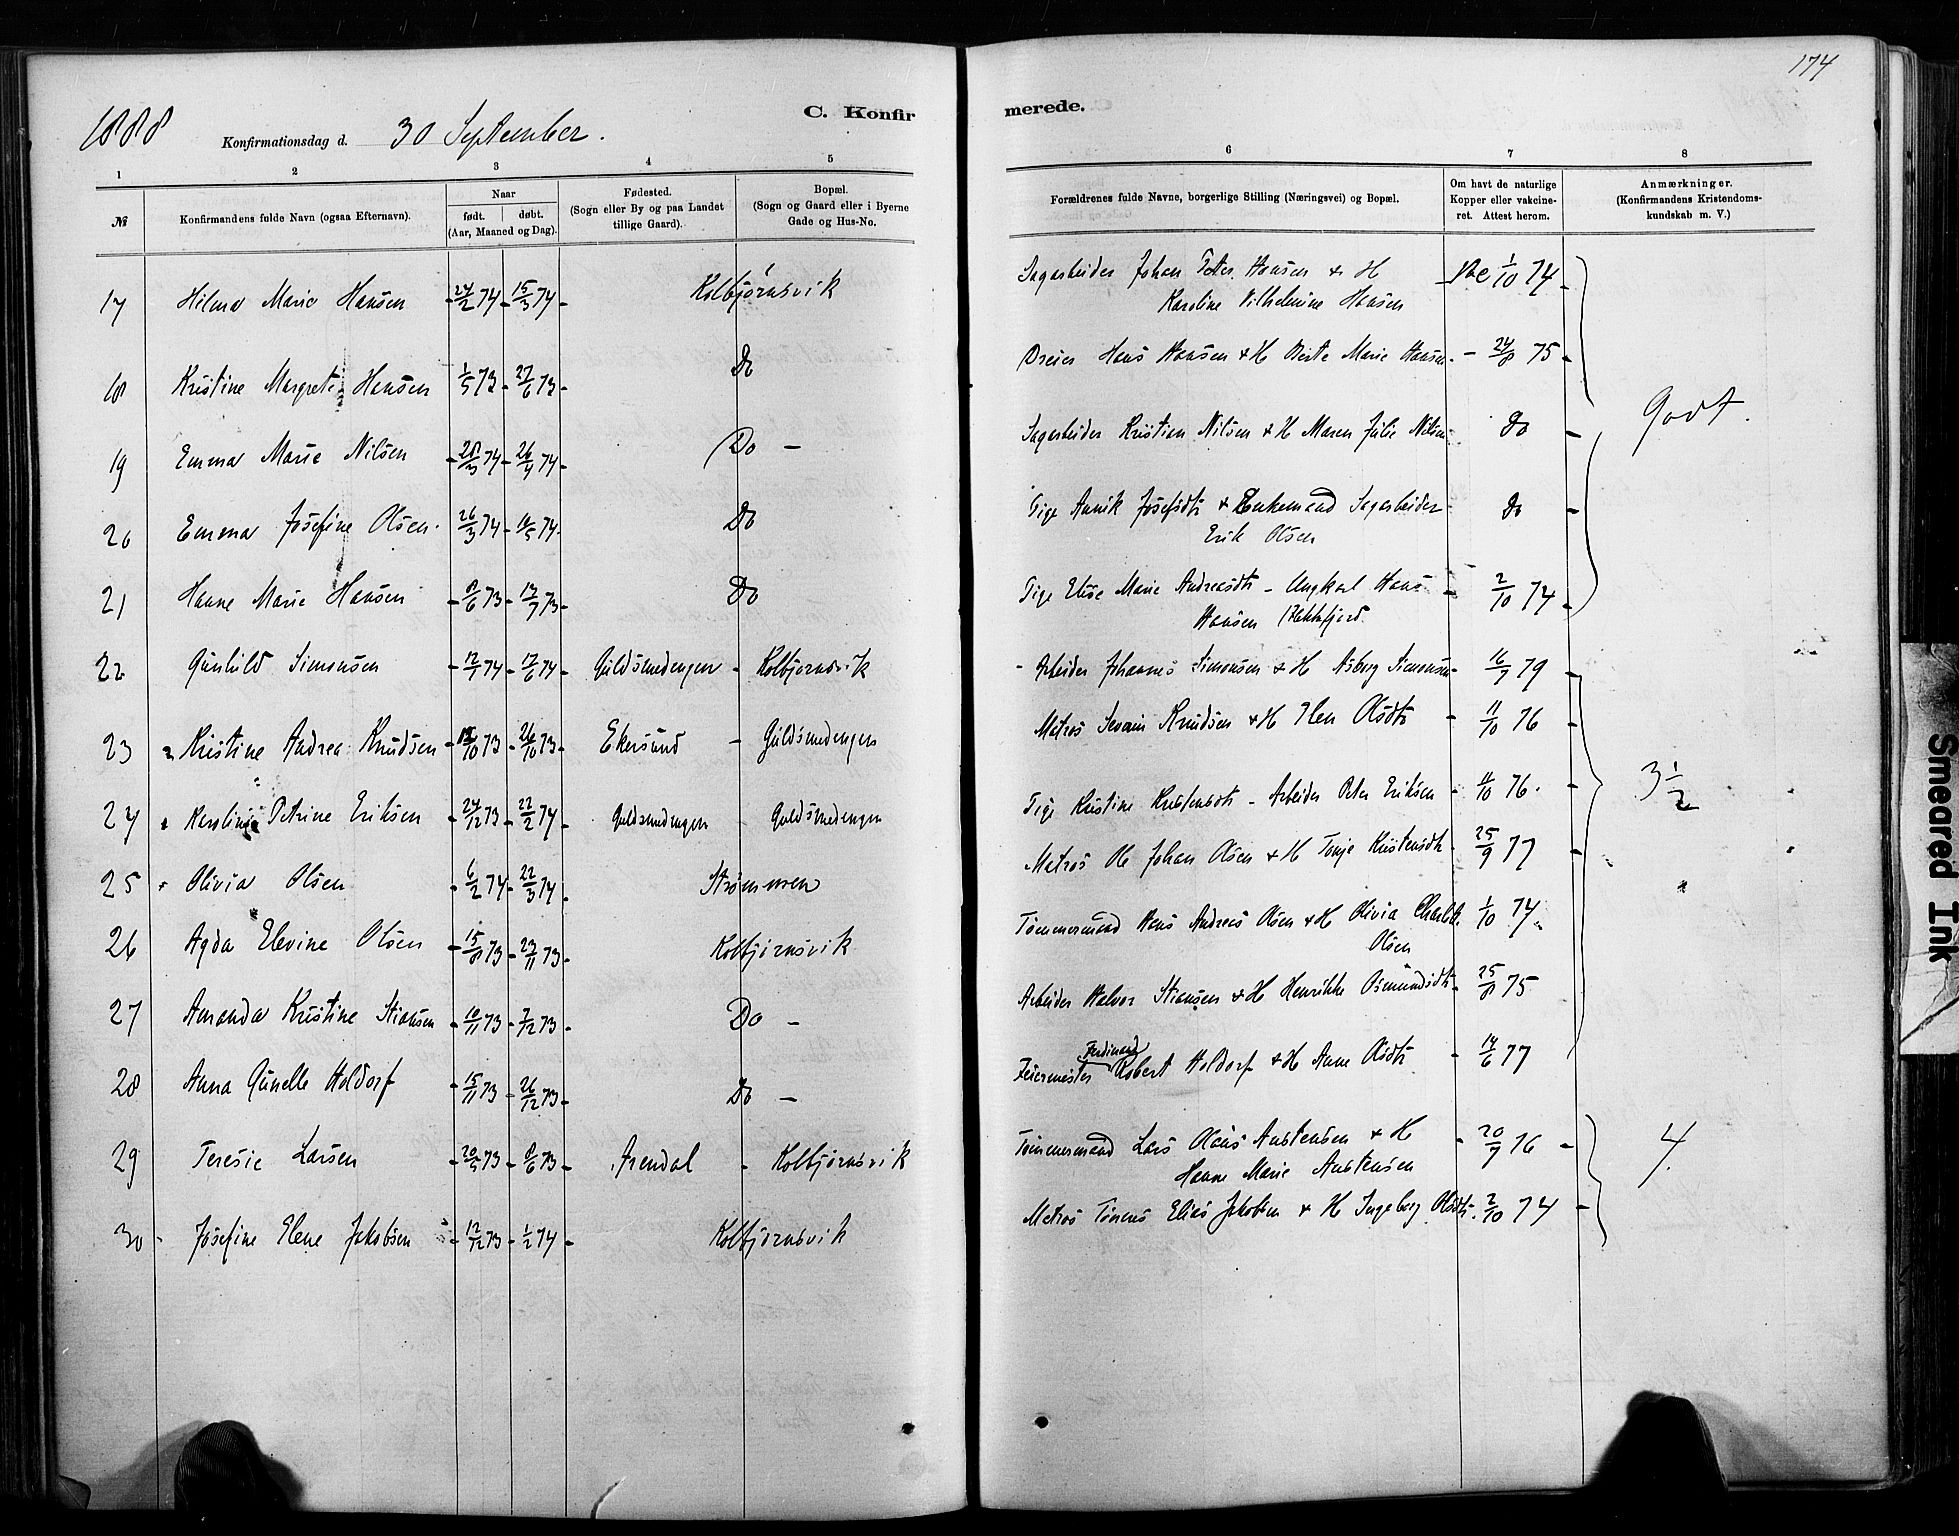 174
1888 Konfirmationsdag d. 30 September.
C. Konfirmerede.
1 2 3 4 5 6 7 8
№
Konfirmandens fulde Navn (ogsaa Efternavn).
Naar
født. døbt.
(Aar, Maaned og Dag).
Fødested.
(Sogn eller By og paa Landet
tillige Gaard).
Bopæl.
(Sogn og Gaard eller i Byerne
Gade og Hus-No.
Forældrenes fulde Navne, borgerlige Stilling (Næringsvei) og Bopæl.
Om havt de naturlige
Kopper eller vakcine-
ret. Attest herom.
Anmærkninger.
(Konfirmandens Kristendoms-
kundskab m. V.)
17 Hilma Marie Hansen 24/2 74 15/3 74 Kolbjörnsvik Sagarbeider Johan Peter Hansen & H 1/10 74
Karoline Vilhelmine Hansen
18 Kristine Margrete Hansen 1/5 73 27/6 73 Do Dreier Hans Hansen & H Berte Marie Hansen 24/8 75
Godt.
19 Emma Marie Nilsen 28/3 74 26/4 74 Do Sagarbeider Kristian Nilsen & H Maren Julie Nilsen Do
20 Emma Josefine Olsen 26/3 74 74 Do Pige Annik Josefsdtr & Enkemand Sagarbeider Do
Erik Olsen
21 Hanne Marie Hansen 8/6 73 13/7 73 Do Pige Elise Marie Andreasdtr - Ungkarl Hans 2/10 74
Hansen
22 Gunhild Simonsen 74 17/6 74 Guldsmedengen - Kolbjornsvik Arbeider Johannes Simonsen & H Asborg Simonsen 16/7 79
23 Kristine Andrea Knudsen 73 26/10 73 Ekersund - Guldsmedengen Matros Severin Knudsen & H Elen Olsdtr 11/10 76
24 Karoline Petrine Eriksen 24/12 73 22/2 74 Guldsmedengen Guldsmedengen Pige Kristine Kristensdtr - Arbeider Peter Eriksen 11/10 76
3 1/2
25 Olivia Olsen 6/2 74 22/3 74 Strømmen Matros Ole Johan Olsen & H Tonje Kristensdtr 25/9 77
26 Agda Elevine Olsen 15/8 73 23/11 73 Kolbjörnsvik Tömmermand Hans Andreas Olsen & H Olivia Charlotte 1/10 74
Olsen
27 Amanda Kristine Stiansen 10/11 73 7/12 73 Do - Arbeider Halvor Stiansen & H Henrikke Osmundsdtr 25/8 75
28 Anna Gunelle Holdorf 15/11 73 26/12 73 Do - Feiermester Ferdinand Robert Holdorf & H Anne Olsdtr 14/6 77
29 Teresie Larsen 20/5 73 8/6 73 Arendal - Kolbjörnsvik Tömmermand Lars Olaus Austensen & H 20/9 76
Hanne Marie Austensen
4.
30 Josefine Elene Jakobsen 12/12 73 1/2 74 Kolbjornsvik Matros Tönnes Elias Jakobsen & H Ingeborg Olsdtr. 2/10 74
Smeared Ink